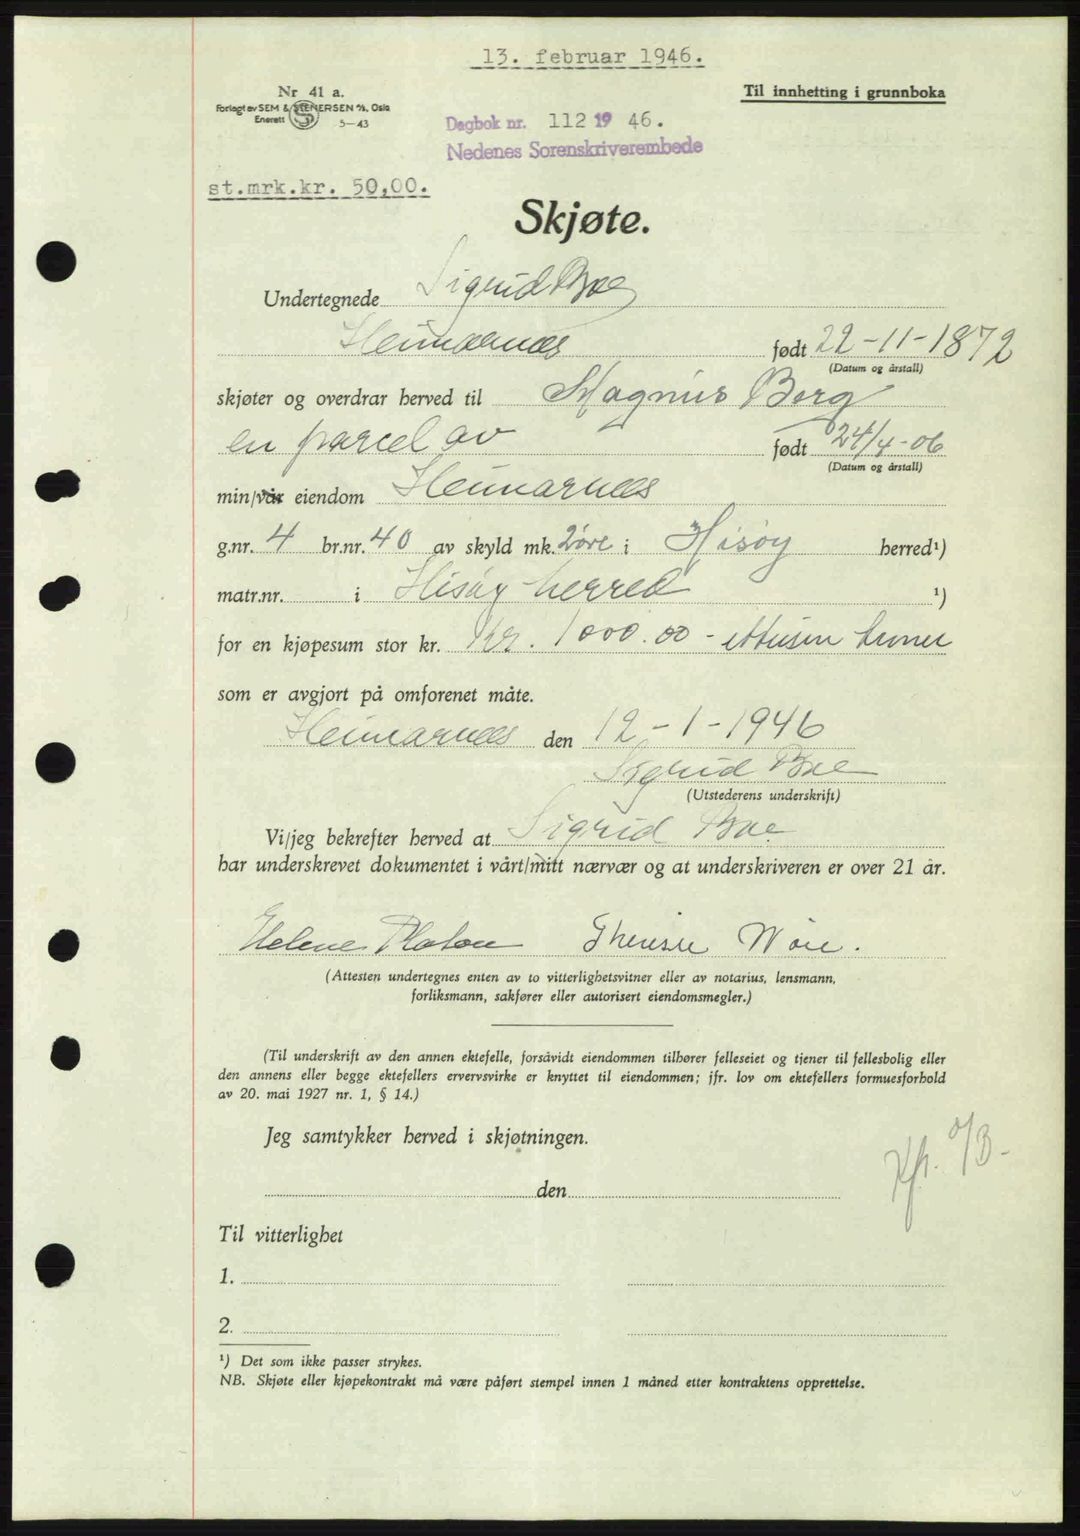 13. februar 1946.
Nr 41 a.
Til innhefting i grunnboka
Forlagt av SEM & STENERSEN A/S, Oslo
Enerett S 5-43
Dagbok nr. 112 19 46.
Nedenes Sorenskriverembede
st.mrk.kr. 50,00.
Skjøte.
Undertegnede Sigrid Boe
født 22-11-1872
(Datum og årstall)
skjøter og overdrar herved til Magnus Berg
en parcel av født 24/4-06
(Datum og årstall)
min/vår eiendom
g.nr. 4 br.nr. 40 av skyld mk. 2 øre i Hisøy herred¹)
matr.nr. i Hisøy herred ¹)
for en kjøpesum stor kr. Kr. 1000.00 - ettusen kroner
som er avgjort på omforenet måte.
den 12-1-1946
Sigrid Boe
(Utstederens underskrift)
Vi/jeg bekrefter herved at Sigrid Boe
har underskrevet dokumentet i vårt/mitt nærvær og at underskriveren er over 21 år.
Helene
(Attesten undertegnes enten av to vitterlighetsvitner eller av notarius, lensmann,
forliksmann, sakfører eller autorisert eiendomsmegler.)
(Til underskrift av den annen ektefelle, forsåvidt eiendommen tilhører felleseiet og tjener til fellesbolig eller
den annens eller begge ektefellers ervervsvirke er knyttet til eiendommen; jfr. lov om ektefellers formuesforhold
av 20. mai 1927 nr. 1, § 14.)
Jeg samtykker herved i skjøtningen.
den
Til vitterlighet
1.
2.
¹) Det som ikke passer strykes.
NB. Skjøte eller kjøpekontrakt må være påført stempel innen 1 måned etter kontraktens opprettelse.